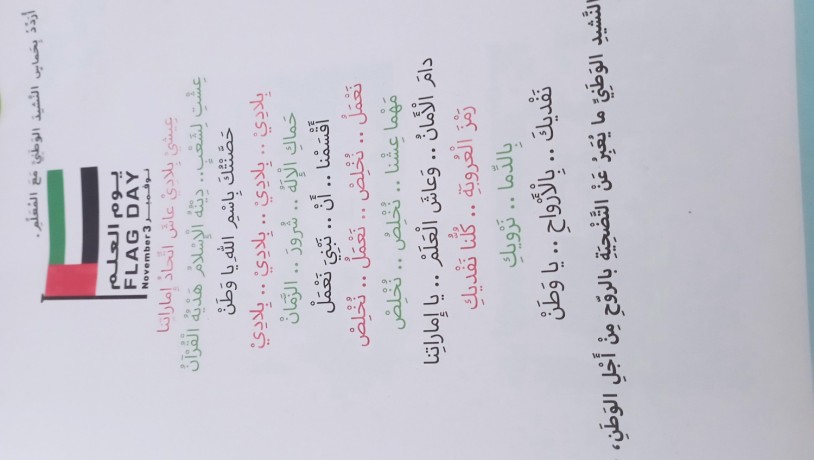 أُرَدِّدُ بِحَماسٍ النَّشيدَ الوَطَنِيَّ مَعَ المُعَلِّمِ.
يـوم العـلـم
FLAG DAY
November 3 نـوفـمـبـر
عِيشِيْ بِلادِيْ عاشَ اتِّحادُ إِماراتِنا
عِشْتِ لِشَعْبٍ.. دِينُهُ الْإِسْلامُ هَدْيُهُ الْقُرْآنُ
حَصَّنْتُكَ بِاسْمِ اللهِ يا وَطَنْ
بِلادِيْ .. بِلادِيْ .. بِلادِيْ .. بِلادِيْ
حَماكِ الْإِلَهُ .. شُرورَ .. الزَّمانْ
أَقْسَمْنا .. أَنْ .. نَبْنِيَ نَعْمَلْ
نَعْمَلُ .. نُخْلِصْ .. نَعْمَلُ .. نُخْلِصْ
مَهْما عِشْنا .. نُخْلِصْ .. نُخْلِصْ
دامَ الْأَمانُ .. وَعاشَ الْعَلَمْ .. يا إِماراتِنا
رَمْزَ الْعُروبَةِ .. كُلُّنا نَفْديكِ
بِالدِّما .. نَرْويكِ
نَفْديكَ .. بِالْأَرْواحِ .. يا وَطَنْ
النَّشيدِ الوَطَنِيِّ ما يُعَبِّرُ عَنْ التَّضْحِيَةِ بِالرّوحِ مِنْ أَجْلِ الوَطَنِ،